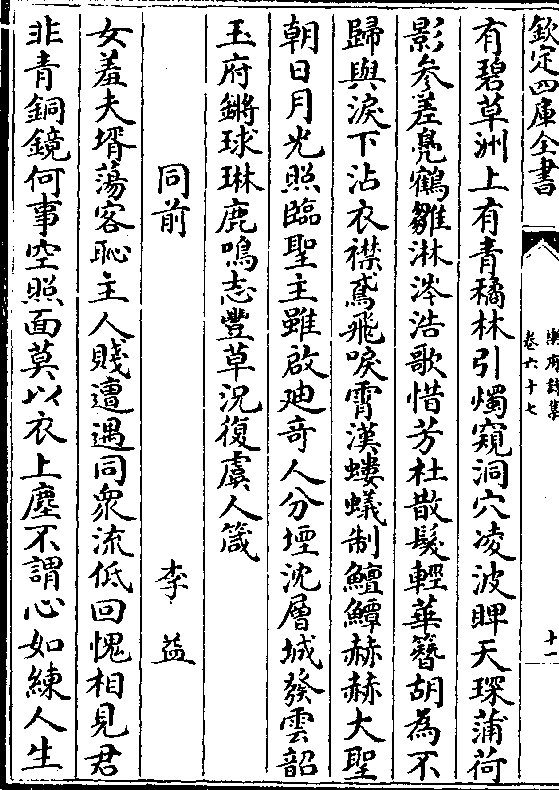 欽定四庫全書
樂府詩集
卷六十七
十一
有碧草洲上有青橘林引燭窺洞穴凌波睥天琛蒲荷
影參差鳧鶴雛淋涔浩歌惜芳杜散髮輕華簪胡為不
歸與淚下沾衣襟鳶飛唳霄漢螻蟻制鱣鱏赫赫大聖
朝日月光照臨聖主雖啟廸竒人分堙沈層城發雲韶
玉府鏘球琳鹿鳴志豐草況復虞人箴
同前 李益
女羞夫壻蕩客恥主人賤遭遇同衆流低回愧相見君
非青銅鏡何事空照面莫以衣上塵不謂心如練人生